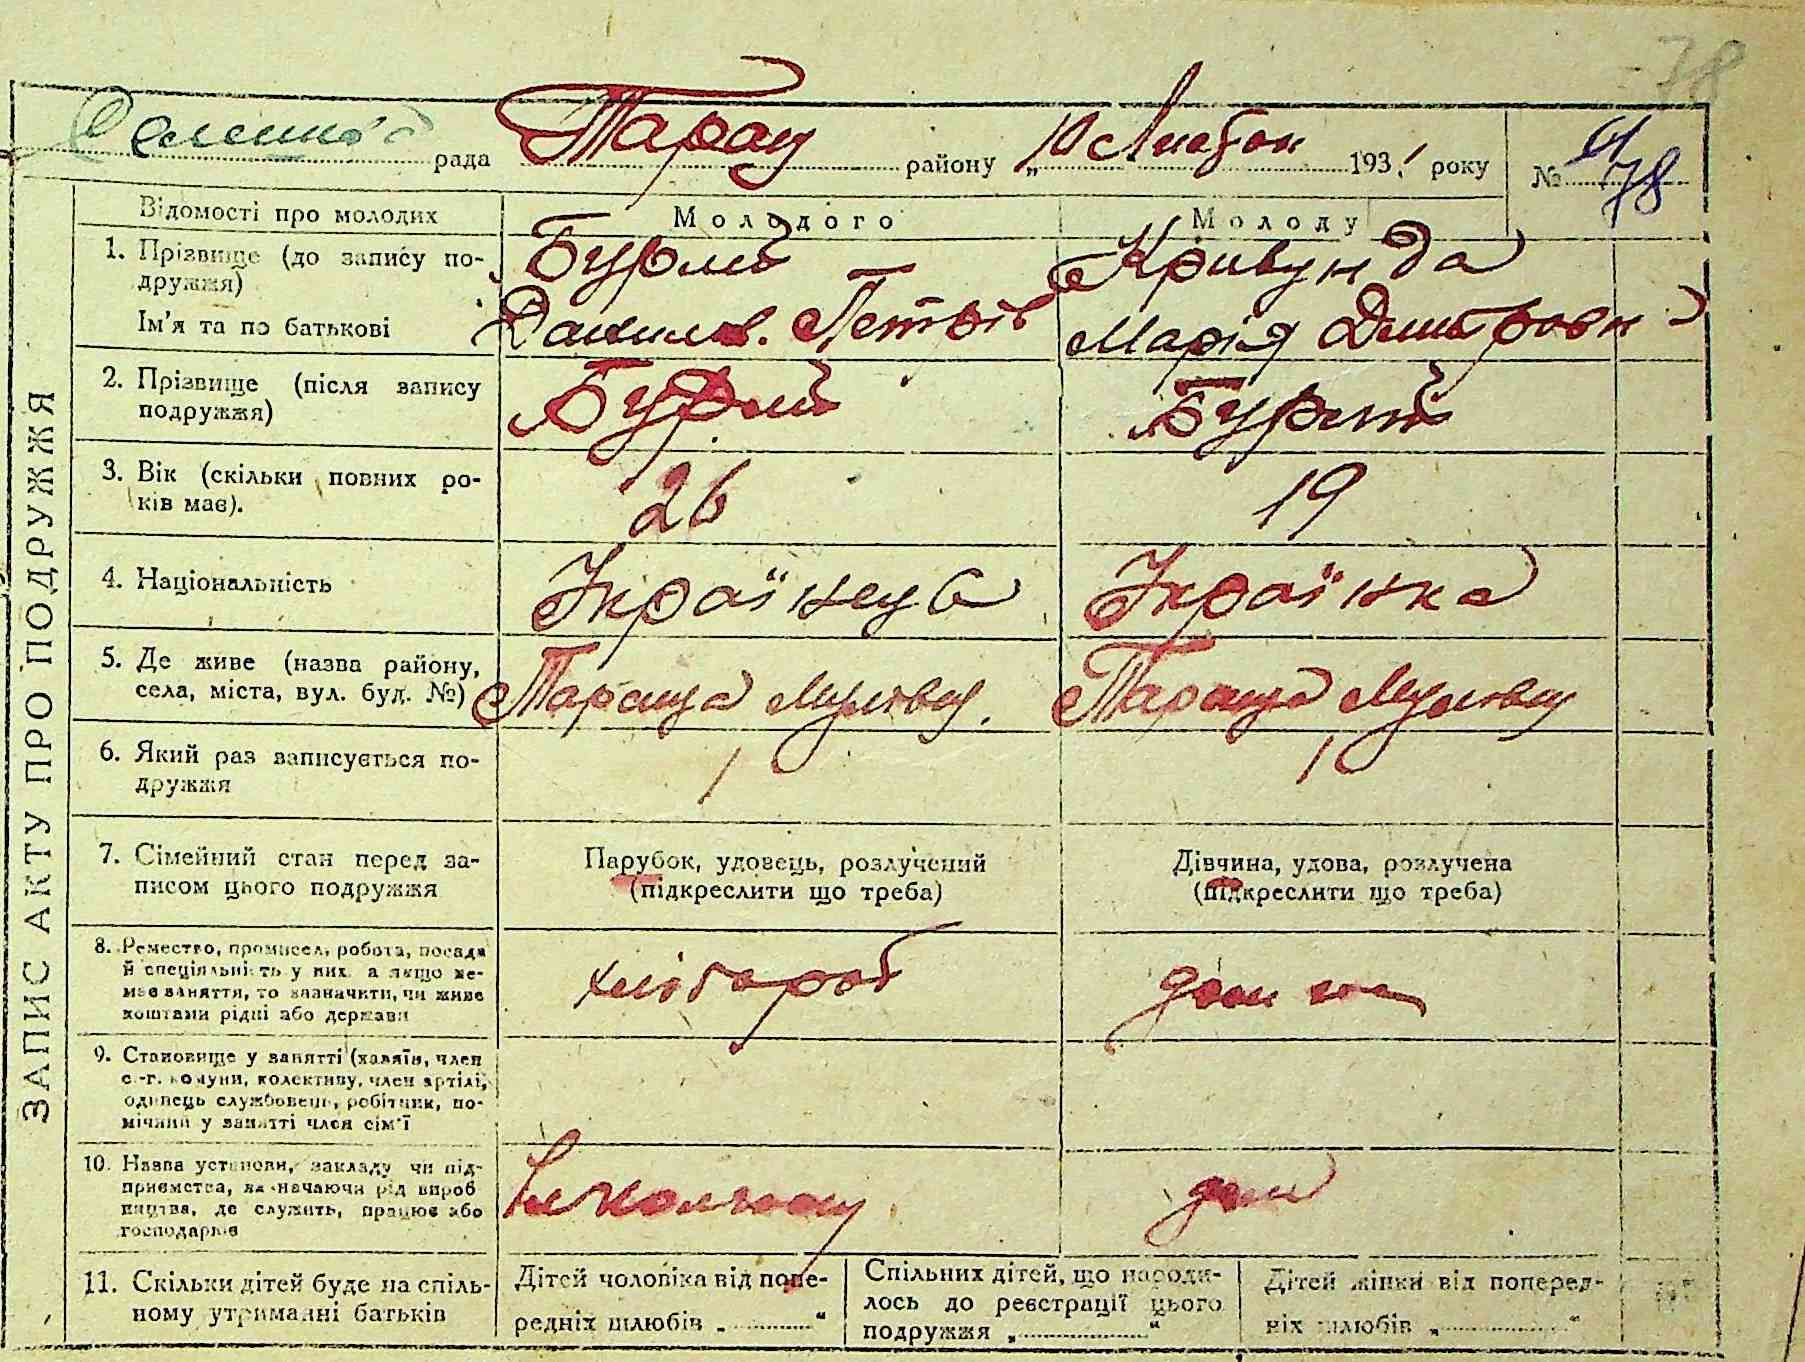 78
рада Таращ району „10 Листоп 1931 року № 61 78
ЗАПИС АКТУ ПРО ПОДРУЖЖЯ
Відомості про молодих Молодого Молоду
1. Прізвище (до запису по-
дружжя)
Кривунда
Ім'я та по батькові
Данило Петрів Марія Дмитровн
2. Прізвище (після запису
подружжя)
3. Вік (скільки повних ро-
ків має).
26 19
4. Національність Українець Українка
5. Де живе (назва району,
села, міста, вул. буд. №)
Тараща Тараща
6. Який раз записується по-
дружжя
1 1
7. Сімейний стан перед за-
писом цього подружжя
Парубок, удовець, розлучений
(підкреслити що треба)
Дівчина, удова, розлучена
(підкреслити що треба)
8. Ремество, промисел, робота, посада
й спеціяльність у них, а якщо не-
має заняття, то зазначити, чи живе
коштами рідні або держави
хлібороб
9. Становище у занятті (хазяїн, член
с.-г. комуни, колективу, член артілі,
одинець службовець, робітник, по-
мічний у занятті член сім'ї
10. Назва установи, закладу чи під-
приємства, зазначаючи рід вироб
ництва, де служить, працює або
господарює
11. Скільки дітей буде на спіль-
ному утриманні батьків
Дітей чоловіка від попе-
редніх шлюбів „ “
Спільних дітей, що народи-
лось до реєстрації цього
подружжя „ “
Дітей жінки від поперед-
ніх шлюбів „ “